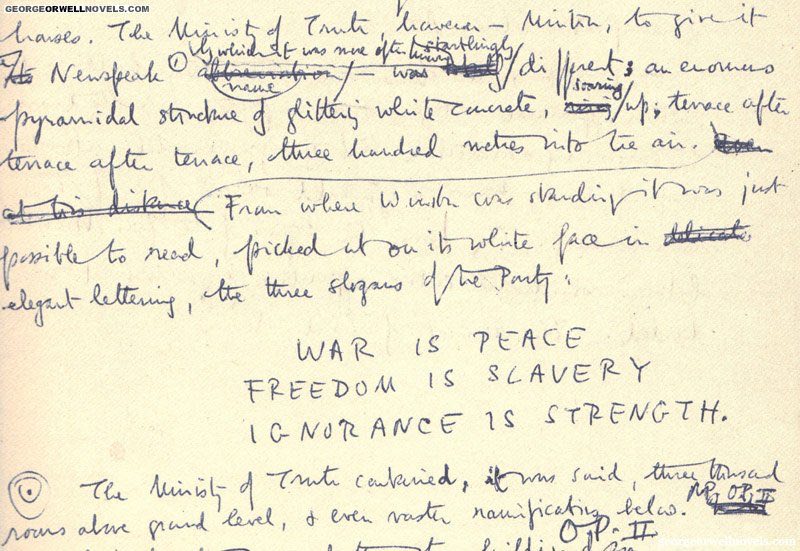 GEORGEORWELLNOVELS.COM
houses. The Ministry of Truth, however – Minitru, to give it
by which it was more often known startlingly
its Newspeak ① abbreviation / – was / different; an enormous
name soaring
pyramidal structure of glittering white concrete, rising / up, terrace after
terrace after terrace, three hundred metres into the air. Even
at this distance From where Winston was standing it was just
possible to read, picked out on its white face in delicate
elegant lettering, the three slogans of the Party:
WAR IS PEACE
FREEDOM IS SLAVERY
IGNORANCE IS STRENGTH.
The Ministry of Truth contained, it was said, three thousand
rooms above ground level, & even vaster ramifications below.
O.P. II
georgeorwellnovels.com